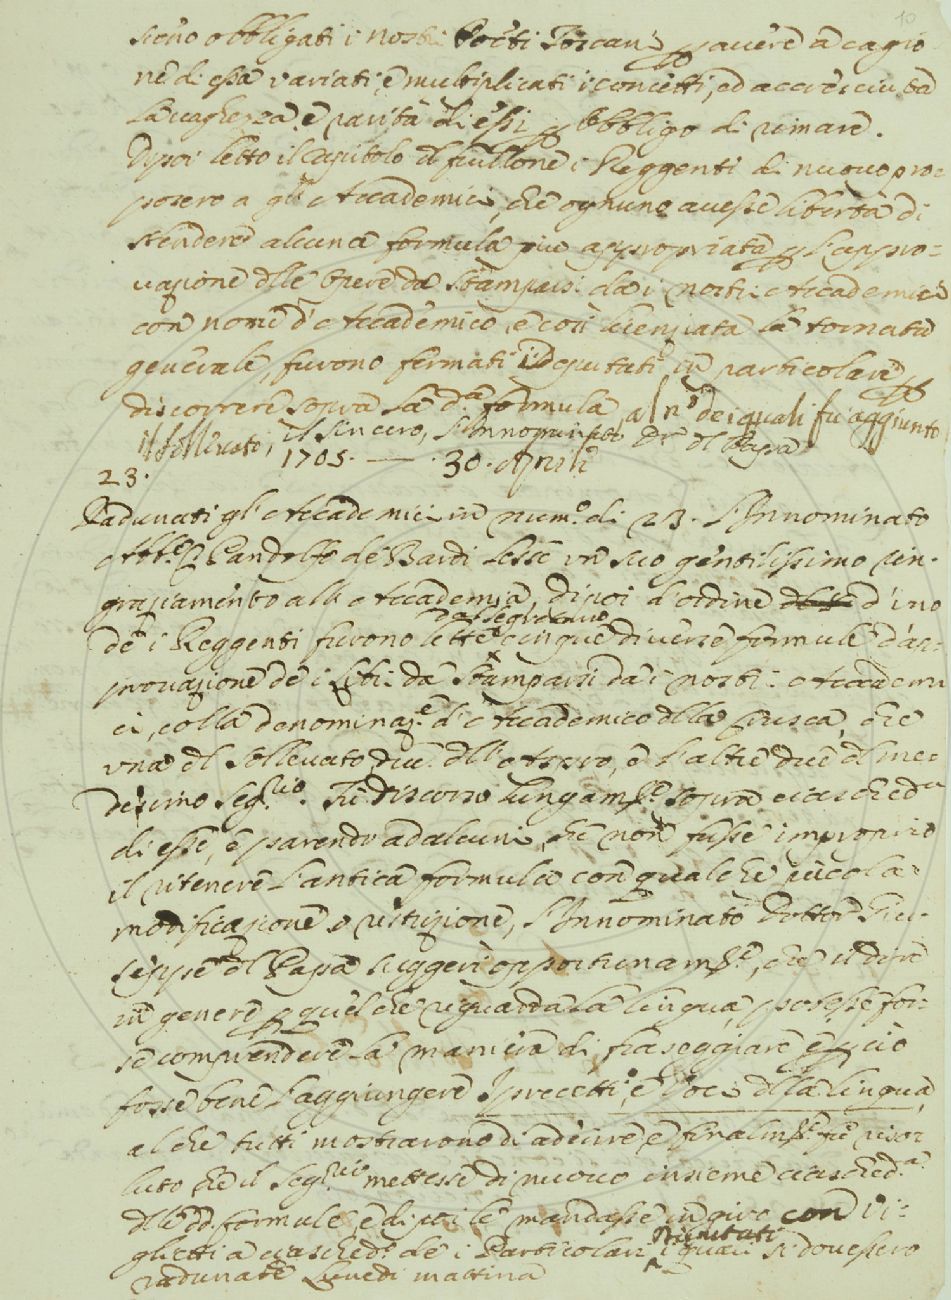 10
sieno obbligati i nostri Poeti Toscani p avere a cagio
ne di essa variati, e multiplicati i concetti, ed accresciuta
la vaghezza, e rarità di essi p l'obbligo di rimare.
Dipoi letto il Capitolo del frullone i Reggenti di nuovo pro=
posero a gli Accademici, che ognuno avesse libertà di
stendere alcuna formula piu appropriata p l'appro=
vazione dlle Opere da stamparsi da i nostri Accademici
con nome d'Accademico, e così licenziata la tornata
generale, furono fermati i Deputati in particolare p
discorrere sopra la d.a formula, al n.o de i quali fu aggiunto
il sollevato, il sincero, l'Innominato Dr. del Papa
1705. — 30. Aprile
23.
Radunati gl'Accademici in num.o di 23. l'Innominato
Abb.e Gandolfo de Bardi lesse un suo gentilissimo rin-
graziamento alla Accademia, dipoi d'ordine d'uno
de i Reggenti furono lette dal segretario cinque diverse formule d'ap-
provazione de i libri da stamparsi da i nostri Accademi
ci, colla denominaz.e d'Accademico dlla Crusca, che
una del Sollevato due dll'Aspro, e l'altre due del me=
desimo Seg.rio. Fu discorso lungam.te sopra ciasched.a
di esse, e parendo ad alcuni, che non fusse improprio
il ritenere l'antica formula con qualche piccola
modificazione, o restrizione, l'Innominato Dottor Giu-
seppe del Papa suggerì opportunam.te, che il dire
in genere p quel che riguarda la lingua, potesse for-
se comprendere la maniera di fraseggiare e p ciò
fosse bene l'aggiungere I precetti, e voci della lingua,
al che tutti mostrarono di aderire, e finalm.te fu riso-
luto che il Seg.rio mettesse di nuovo insieme ciasched.a
dlle dd. formule, e dipoi le mandasse in giro con vi=
glietti a ciasched.o de i Particolari Deputati i quali si dovessero
radunare Lunedì mattina